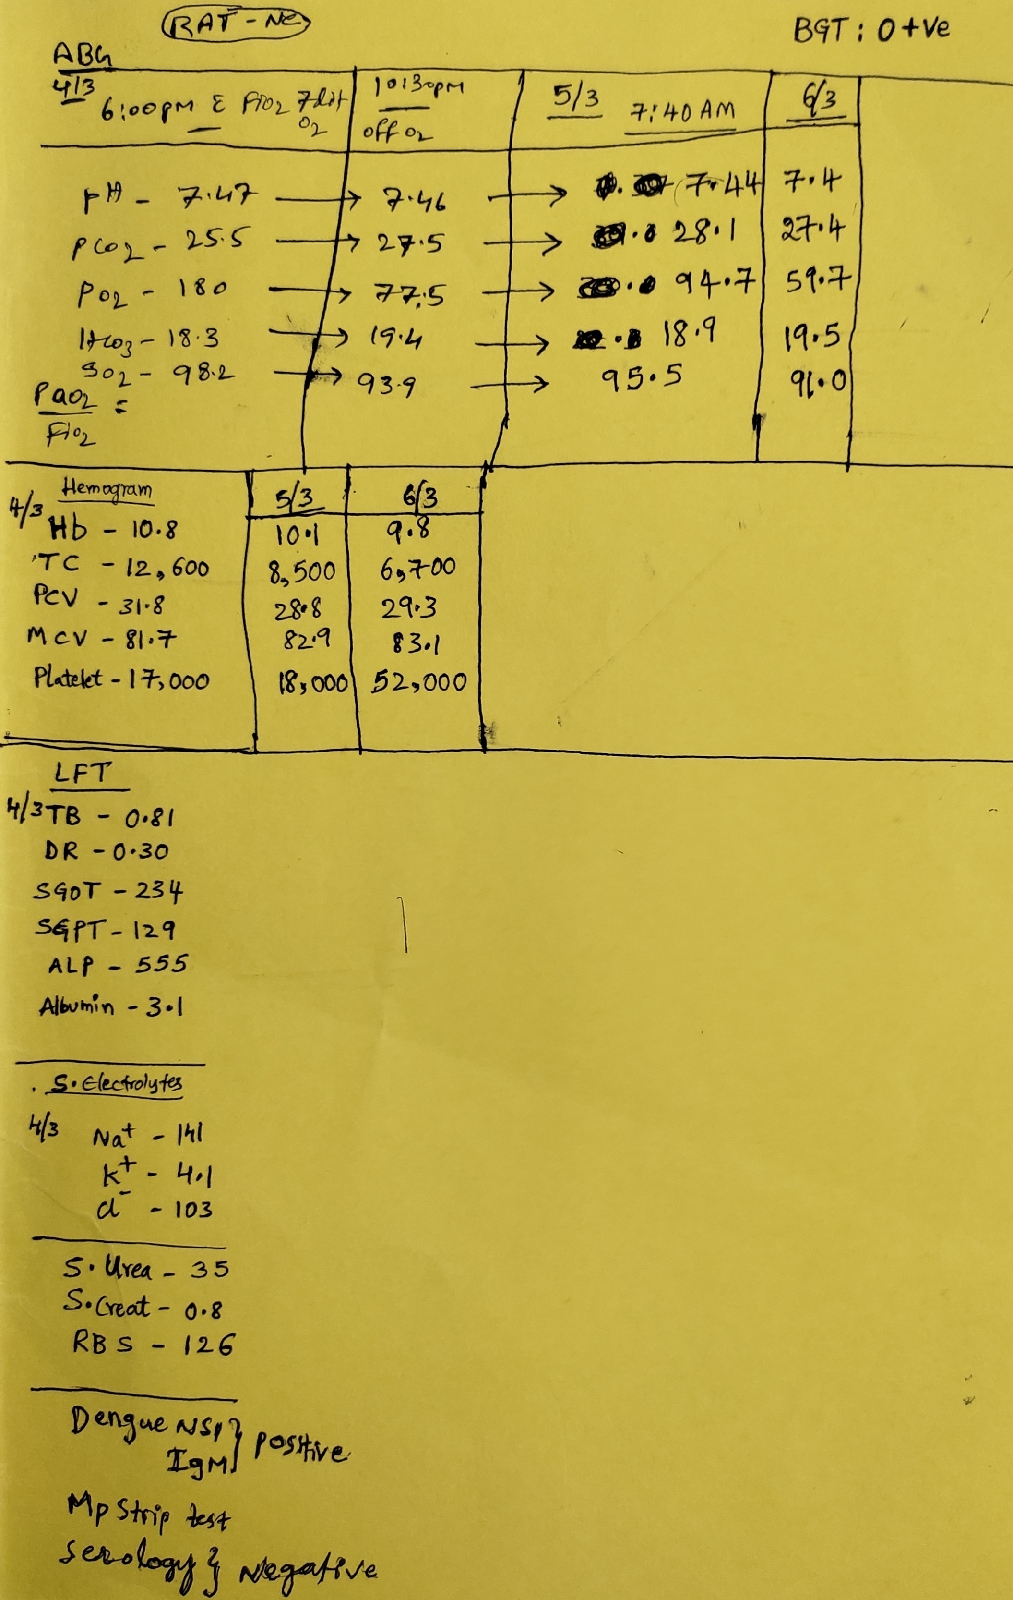 RAT - Ne
BGT : O +ve
ABG
4/3 6:00 pm c̄ FiO2 7 lit O2
10:30pm off O2
5/3 7:40 AM
6/3
pH - 7.47 → 7.46 → 7.44 7.4
PCO2 - 25.5 → 27.5 → 28.1 27.4
PO2 - 180 → 77.5 → 94.7 59.7
HCO3 - 18.3 → 19.4 → 18.9 19.5
SO2 - 98.2 → 93.9 → 95.5 91.0
PaO2 / FiO2 =
4/3 Hemogram 5/3 6/3
Hb - 10.8 10.1 9.8
TC - 12,600 8,500 6,700
PCV - 31.8 28.8 29.3
MCV - 81.7 82.9 83.1
Platelet - 17,000 18,000 52,000
LFT
4/3 TB - 0.81
DR - 0.30
SGOT - 234
SGPT - 129
ALP - 555
Albumin - 3.1
S. Electrolytes
4/3 Na+ - 141
K+ - 4.1
Cl- - 103
S. Urea - 35
S. Creat - 0.8
RBS - 126
Dengue NS1 } Positive
IgM
Mp Strip test
Serology } Negative